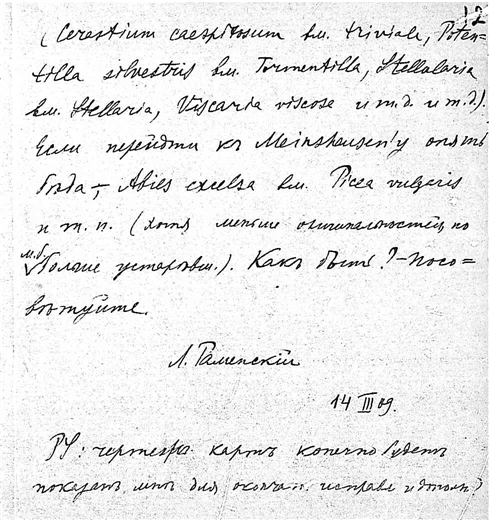 12
(Cerastium caespitosum вм. triviale, Poten=
tilla silvestris вм. Tormentilla, Stellularia
вм. Stellaria, Viscaria viscosa и т.д. и т.д.).
Если перейдти къ Meinshausen'у опять
бѣда –, Abies excelsa вм. Picea vulgaris
и т. п. (хотя меньше оригинальностей, но
м.б. больше устарѣвш.). Какъ быть? – Посо=
вѣтуйте.
Л. Раменскій
14 III 09.
PS: чертежъ карты конечно будетъ
показанъ мнѣ для окончат. исправл. и дополн.?